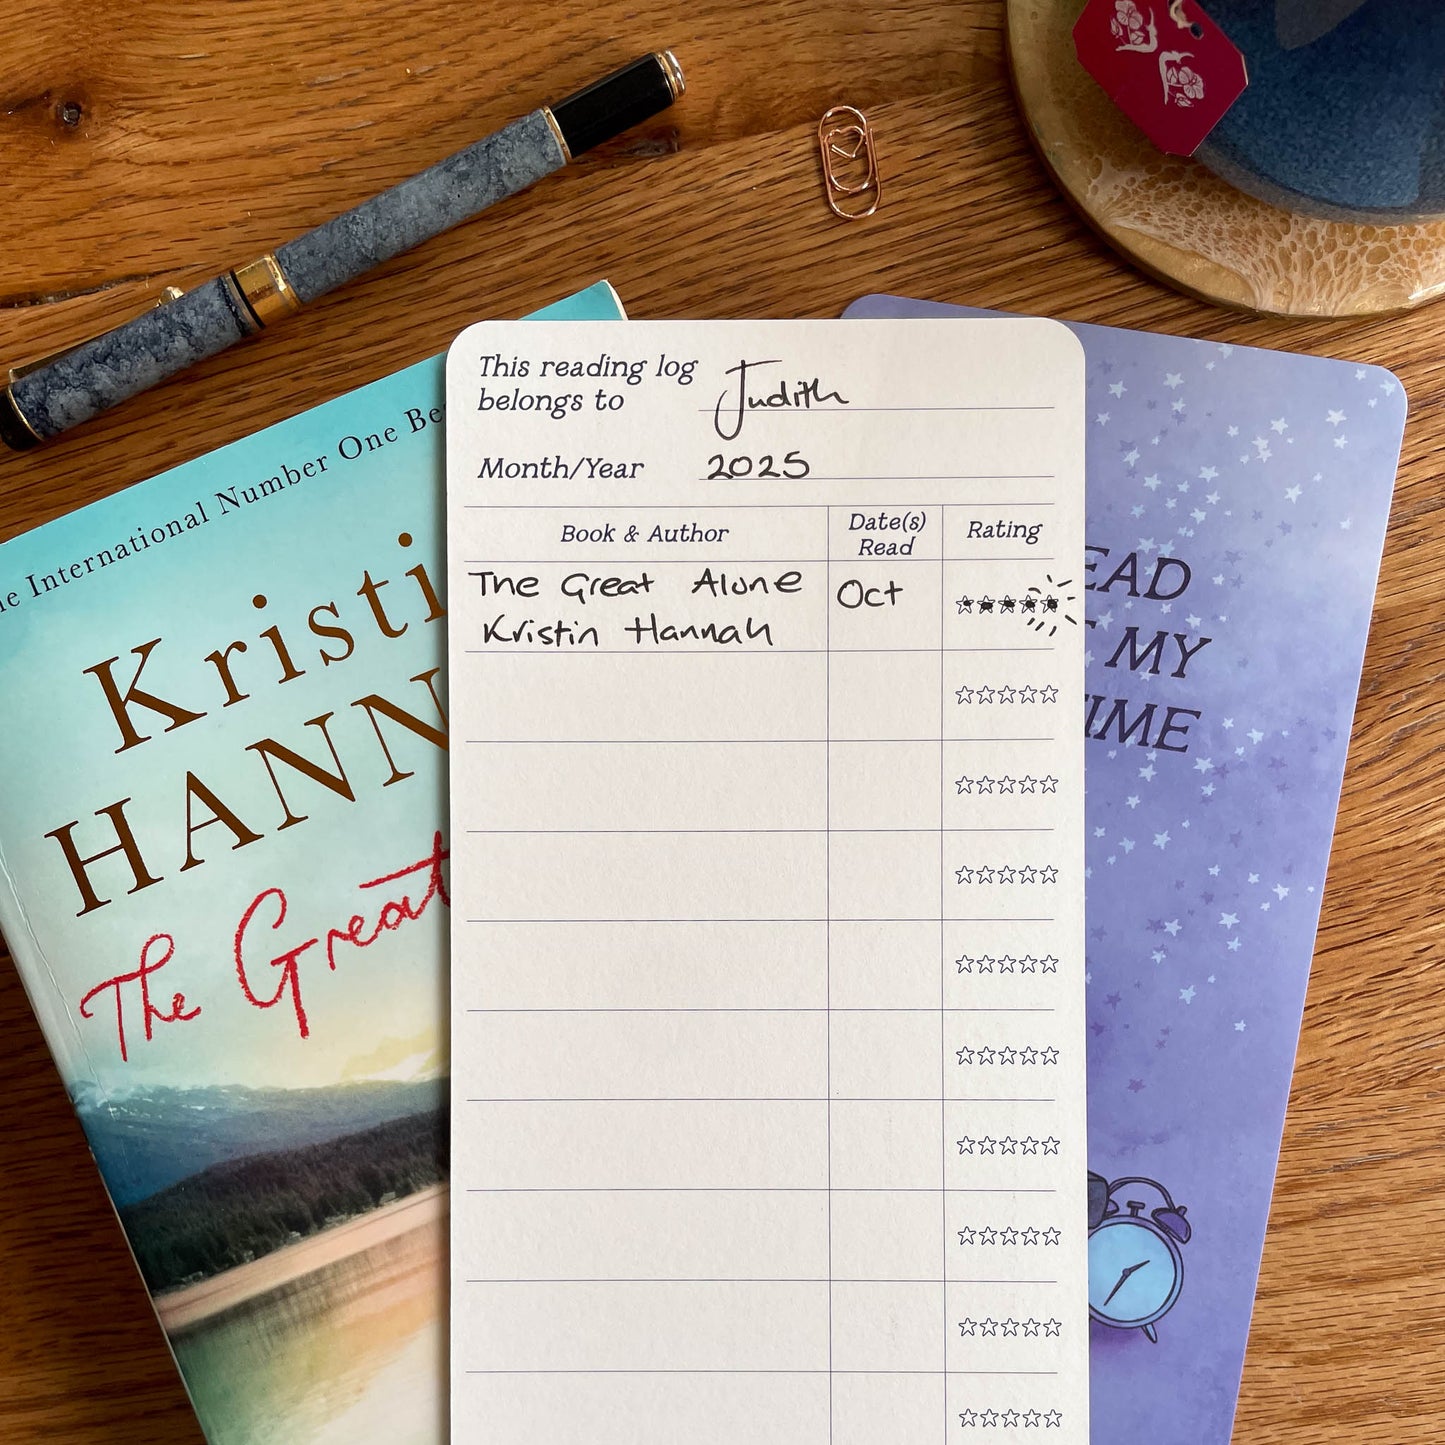 The International Number One Be
Kristi
HANN
The Great
This reading log
belongs to
Judith
Month/Year
2025
Book & Author
Date(s)
Read
Rating
The Great Alone
Kristin Hannah
Oct
EAD
MY
IME